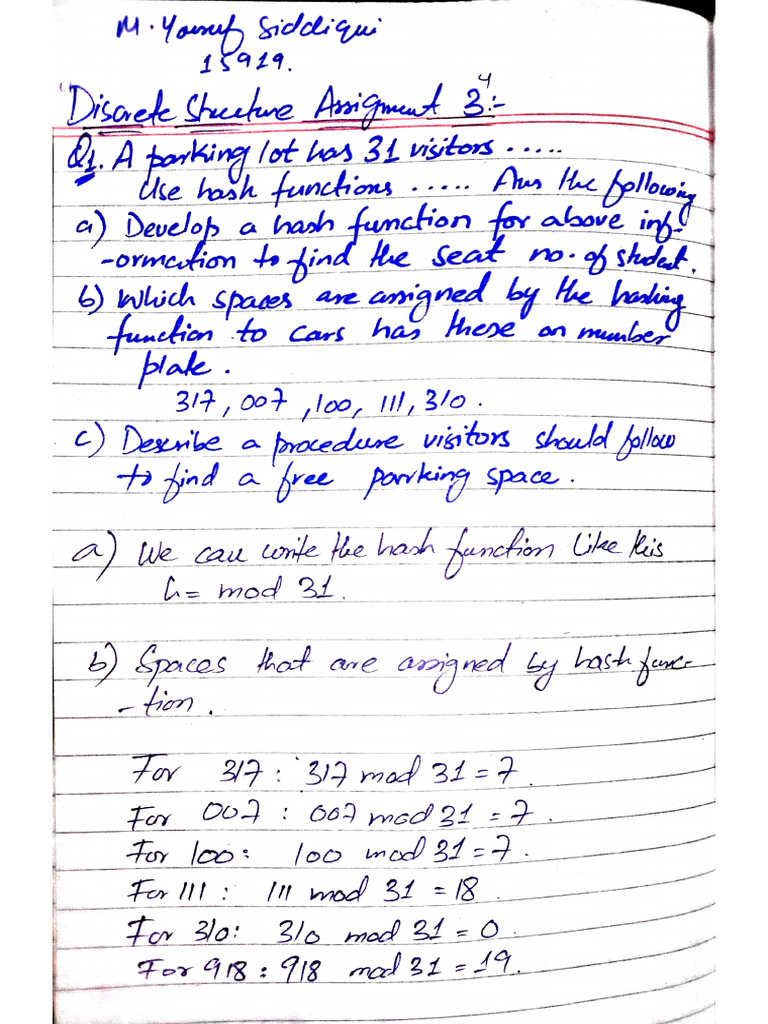 M. Yousuf Siddiqui
15919.
4
Discrete Structure Assigment 3:-
Q1. A parking lot has 31 visitors .....
Use hash functions ..... Ans the following
a) Develop a hash function for above inf-
-ormation to find the seat no. of student.
b) Which spaces are assigned by the hashing
function to cars has these on number
plate.
317, 007, 100, 111, 310.
c) Describe a procedure visitors should follow
to find a free parking space.
a) We can write the hash function like this
h = mod 31.
b) Spaces that are assigned by hash func-
-tion.
For 317 : 317 mod 31 = 7.
For 007 : 007 mod 31 = 7.
For 100 : 100 mod 31 = 7.
For 111 : 111 mod 31 = 18
For 310: 310 mod 31 = 0.
For 918 : 918 mod 31 = 19.